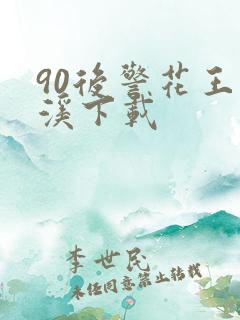 90後警花王
溪下載
李世民
未經同意禁止轉載